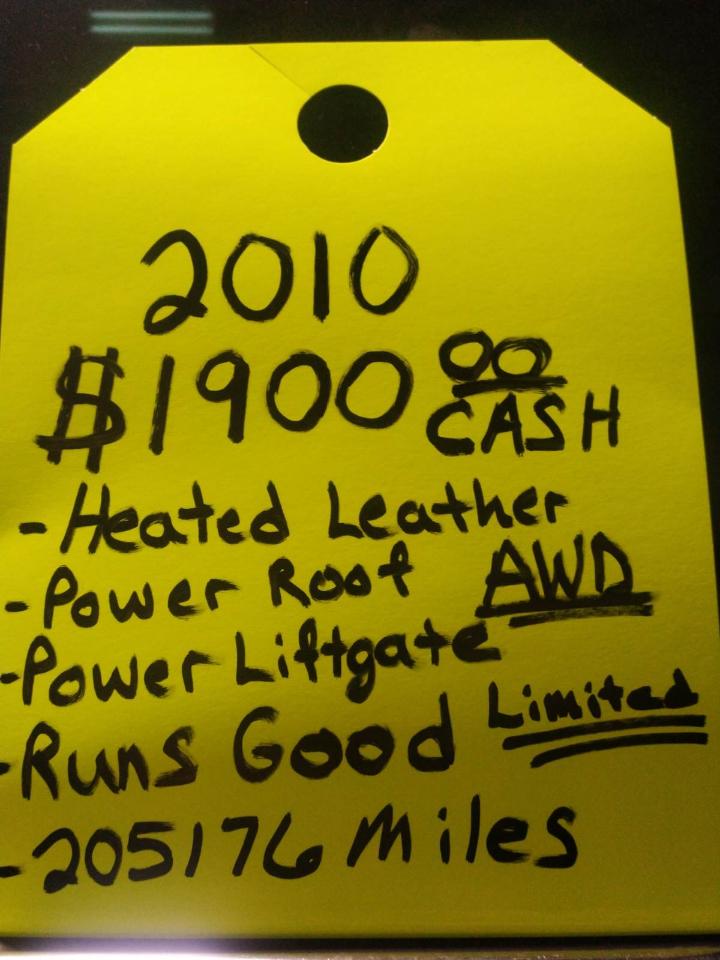 2010
$1900 00 CASH
- Heated Leather
- Power Roof AWD
- Power Liftgate
- Runs Good Limited
- 205176 Miles